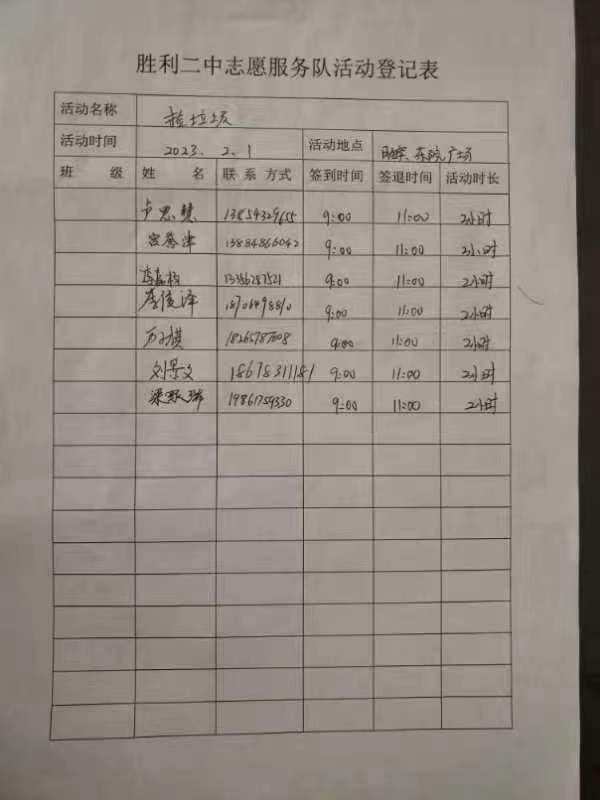 胜利二中志愿服务队活动登记表
活动名称 捡垃圾
活动时间 2023.2.1 活动地点 东院广场
班级 姓名 联系方式 签到时间 签退时间 活动时长
卢思慧 13854329655 9:00 11:00 2小时
13884866042 9:00 11:00 2小时
9:00 11:00 2小时
李俊泽 9:00 11:00 2小时
9:00 11:00 2小时
刘景文 18678311181 9:00 11:00 2小时
梁跃瑞 19861759330 9:00 11:00 2小时